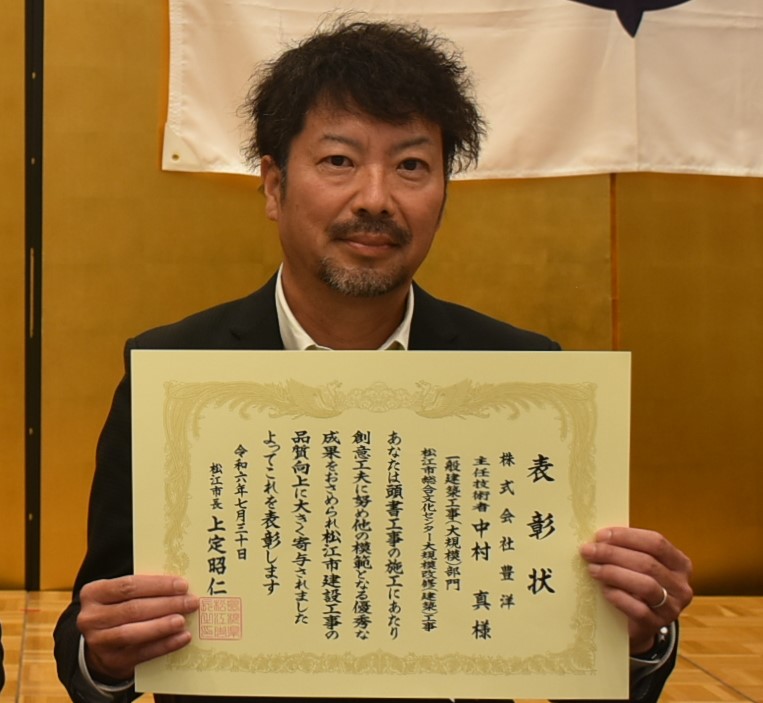 表彰状
株式会社豊洋
主任技術者 中村 真 様
一般建築工事(大規模)部門
松江市総合文化センター大規模改修(建築)工事
あなたは頭書工事の施工にあたり
創意工夫に努め他の模範となる優秀な
成果をおさめられ松江市建設工事の
品質向上に大きく寄与されました
よってこれを表彰します
令和六年七月三十日
松江市長 上定昭仁